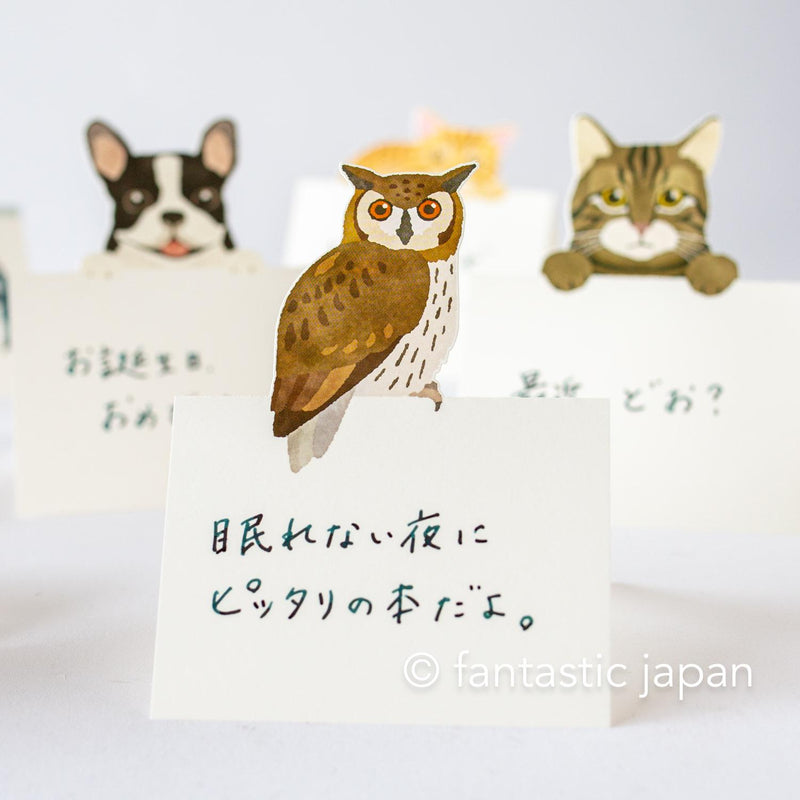 お誕生日
おめ
最近 どお?
眠れない夜に
ピッタリの本だよ。
© fantastic japan